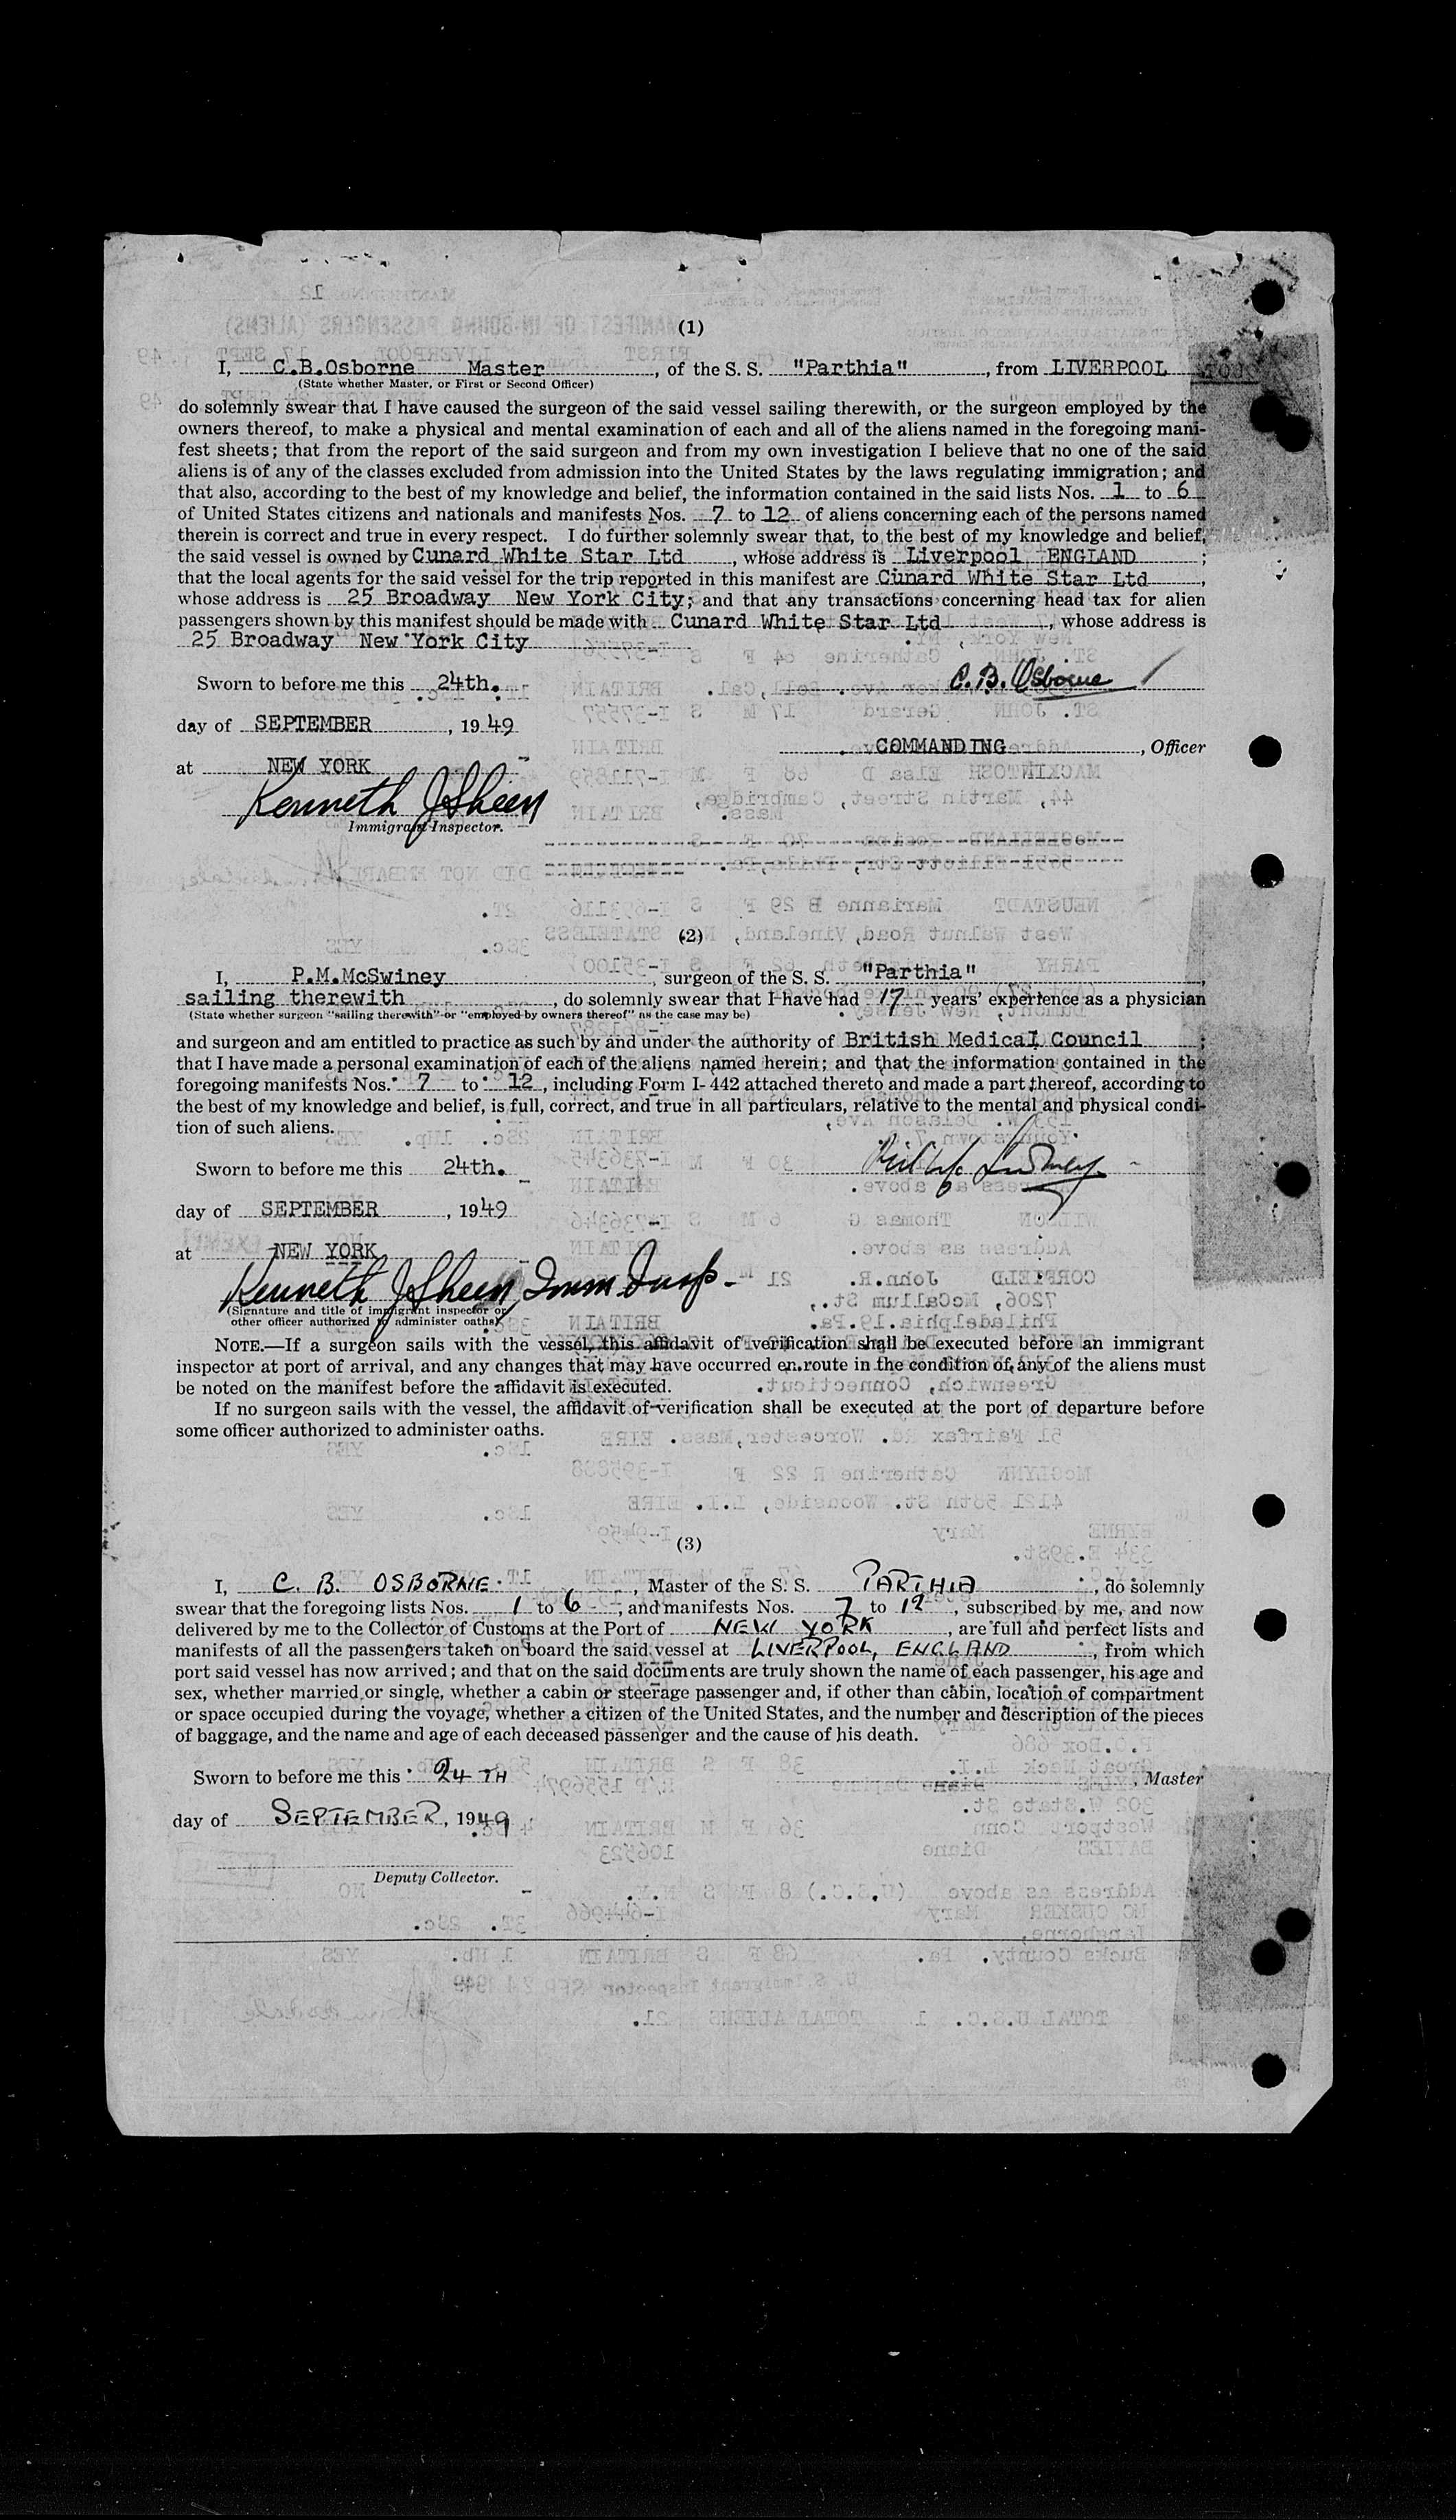 (1)
I, C.B.Osborne Master, of the S. S. "Parthia", from LIVERPOOL
(State whether Master, or First or Second Officer)
do solemnly swear that I have caused the surgeon of the said vessel sailing therewith, or the surgeon employed by the
owners thereof, to make a physical and mental examination of each and all of the aliens named in the foregoing mani-
fest sheets; that from the report of the said surgeon and from my own investigation I believe that no one of the said
aliens is of any of the classes excluded from admission into the United States by the laws regulating immigration; and
that also, according to the best of my knowledge and belief, the information contained in the said lists Nos. 1 to 6
of United States citizens and nationals and manifests Nos. 7 to 12 of aliens concerning each of the persons named
therein is correct and true in every respect. I do further solemnly swear that, to the best of my knowledge and belief,
the said vessel is owned by Cunard White Star Ltd, whose address is Liverpool ENGLAND;
that the local agents for the said vessel for the trip reported in this manifest are Cunard White Star Ltd,
whose address is 25 Broadway New York City; and that any transactions concerning head tax for alien
passengers shown by this manifest should be made with Cunard White Star Ltd, whose address is
25 Broadway New York City
Sworn to before me this 24th. C. B. Osborne
day of SEPTEMBER, 1949
COMMANDING, Officer
at NEW YORK
Kenneth J Sheen
Immigrant Inspector.
(2)
I, P.M.McSwiney, surgeon of the S. S. "Parthia",
sailing therewith, do solemnly swear that I have had 17 years' experience as a physician
(State whether surgeon "sailing therewith" or "employed by owners thereof" as the case may be)
and surgeon and am entitled to practice as such by and under the authority of British Medical Council;
that I have made a personal examination of each of the aliens named herein; and that the information contained in the
foregoing manifests Nos. 7 to 12, including Form I-442 attached thereto and made a part thereof, according to
the best of my knowledge and belief, is full, correct, and true in all particulars, relative to the mental and physical condi-
tion of such aliens.
Sworn to before me this 24th.
day of SEPTEMBER, 1949
at NEW YORK
Kenneth J Sheen, Imm Insp.
(Signature and title of immigrant inspector or
other officer authorized to administer oaths)
NOTE.—If a surgeon sails with the vessel, this affidavit of verification shall be executed before an immigrant
inspector at port of arrival, and any changes that may have occurred en route in the condition of any of the aliens must
be noted on the manifest before the affidavit is executed.
If no surgeon sails with the vessel, the affidavit of verification shall be executed at the port of departure before
some officer authorized to administer oaths.
(3)
I, C. B. OSBORNE, Master of the S. S. PARTHIA, do solemnly
swear that the foregoing lists Nos. 1 to 6, and manifests Nos. 7 to 12, subscribed by me, and now
delivered by me to the Collector of Customs at the Port of NEW YORK, are full and perfect lists and
manifests of all the passengers taken on board the said vessel at LIVERPOOL, ENGLAND, from which
port said vessel has now arrived; and that on the said documents are truly shown the name of each passenger, his age and
sex, whether married or single, whether a cabin or steerage passenger and, if other than cabin, location of compartment
or space occupied during the voyage, whether a citizen of the United States, and the number and description of the pieces
of baggage, and the name and age of each deceased passenger and the cause of his death.
Sworn to before me this 24TH, Master
day of SEPTEMBER, 1949
Deputy Collector.